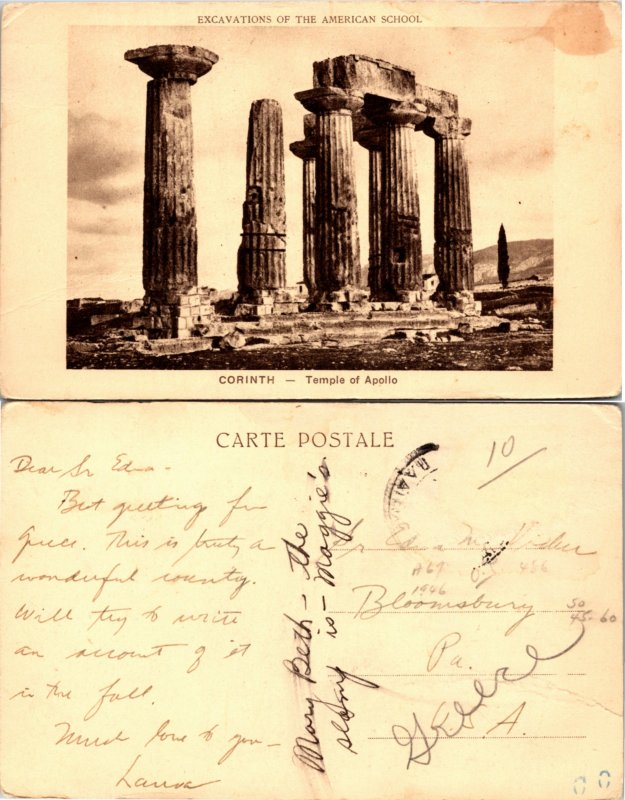 EXCAVATIONS OF THE AMERICAN SCHOOL
CORINTH — Temple of Apollo
CARTE POSTALE
Dear Sr Edna -
Best greetings from
Greece. This is truly a
wonderful country.
Will try to write
an account of it
in the fall.
Much love to you -
Laura
Mary Beth - the
stamp is - Maggie's
10
Edna
A69
486
1946
Bloomsbury
50
45-60
Pa.
U.S.A.
Greece